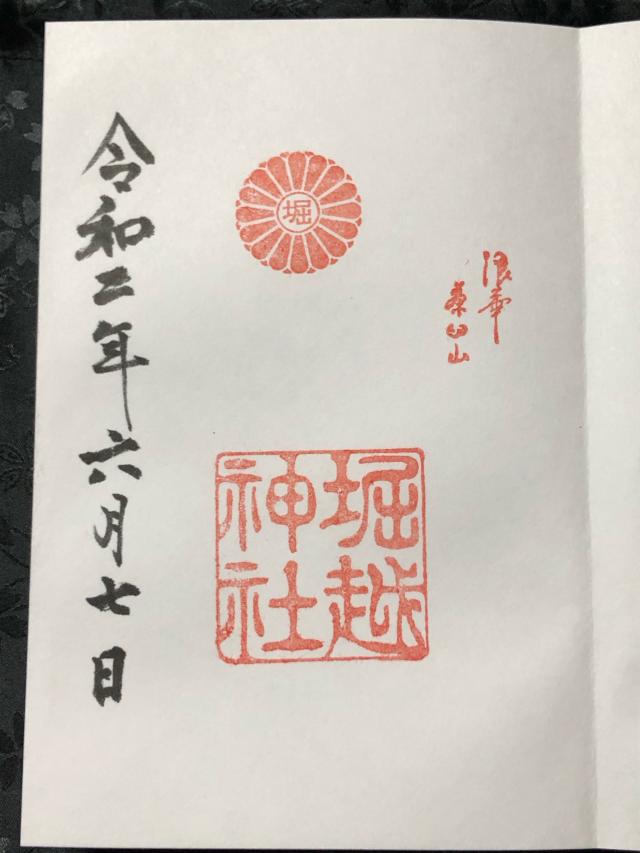 浪華
茶臼山
堀
堀越
神社
令和二年六月七日